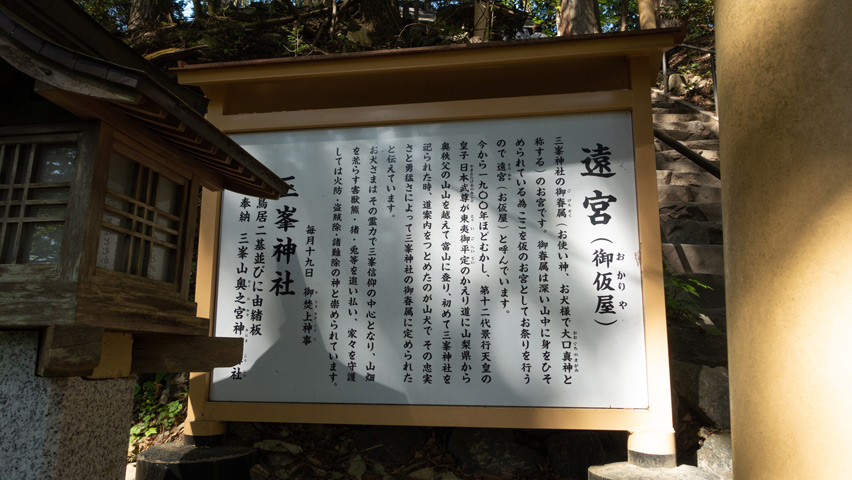 遠宮(御仮屋)
おかりや
三峯神社の御眷属(お使い神、お犬様で大口真神と
ごけんぞく
おおぐちのまがみ
称する)のお宮です。御眷属は深い山中に身をひそ
められている為ここを仮のお宮としてお祭りを行う
ので遠宮(お仮屋)と呼んでいます。
今から一九〇〇年ほどむかし、第十二代景行天皇の
皇子日本武尊が東夷御平定のかえり道に山梨県から
奥秩父の山山を越えて當山に登り、初めて三峯神社を
祀られた時、道案内をつとめたのが山犬で その忠実
さと勇猛さによって三峯神社の御眷属に定められた
と伝えています。
お犬さまはその霊力で三峯信仰の中心となり、山畑
を荒らす害獣熊・猪・兎等を追い払い、家々を守護
しては火防・盗賊除・諸難除の神と崇められています。
毎月十九日 御焚上神事
峯神社
鳥居二基並びに由緒板
奉納 三峯山奥之宮神
社